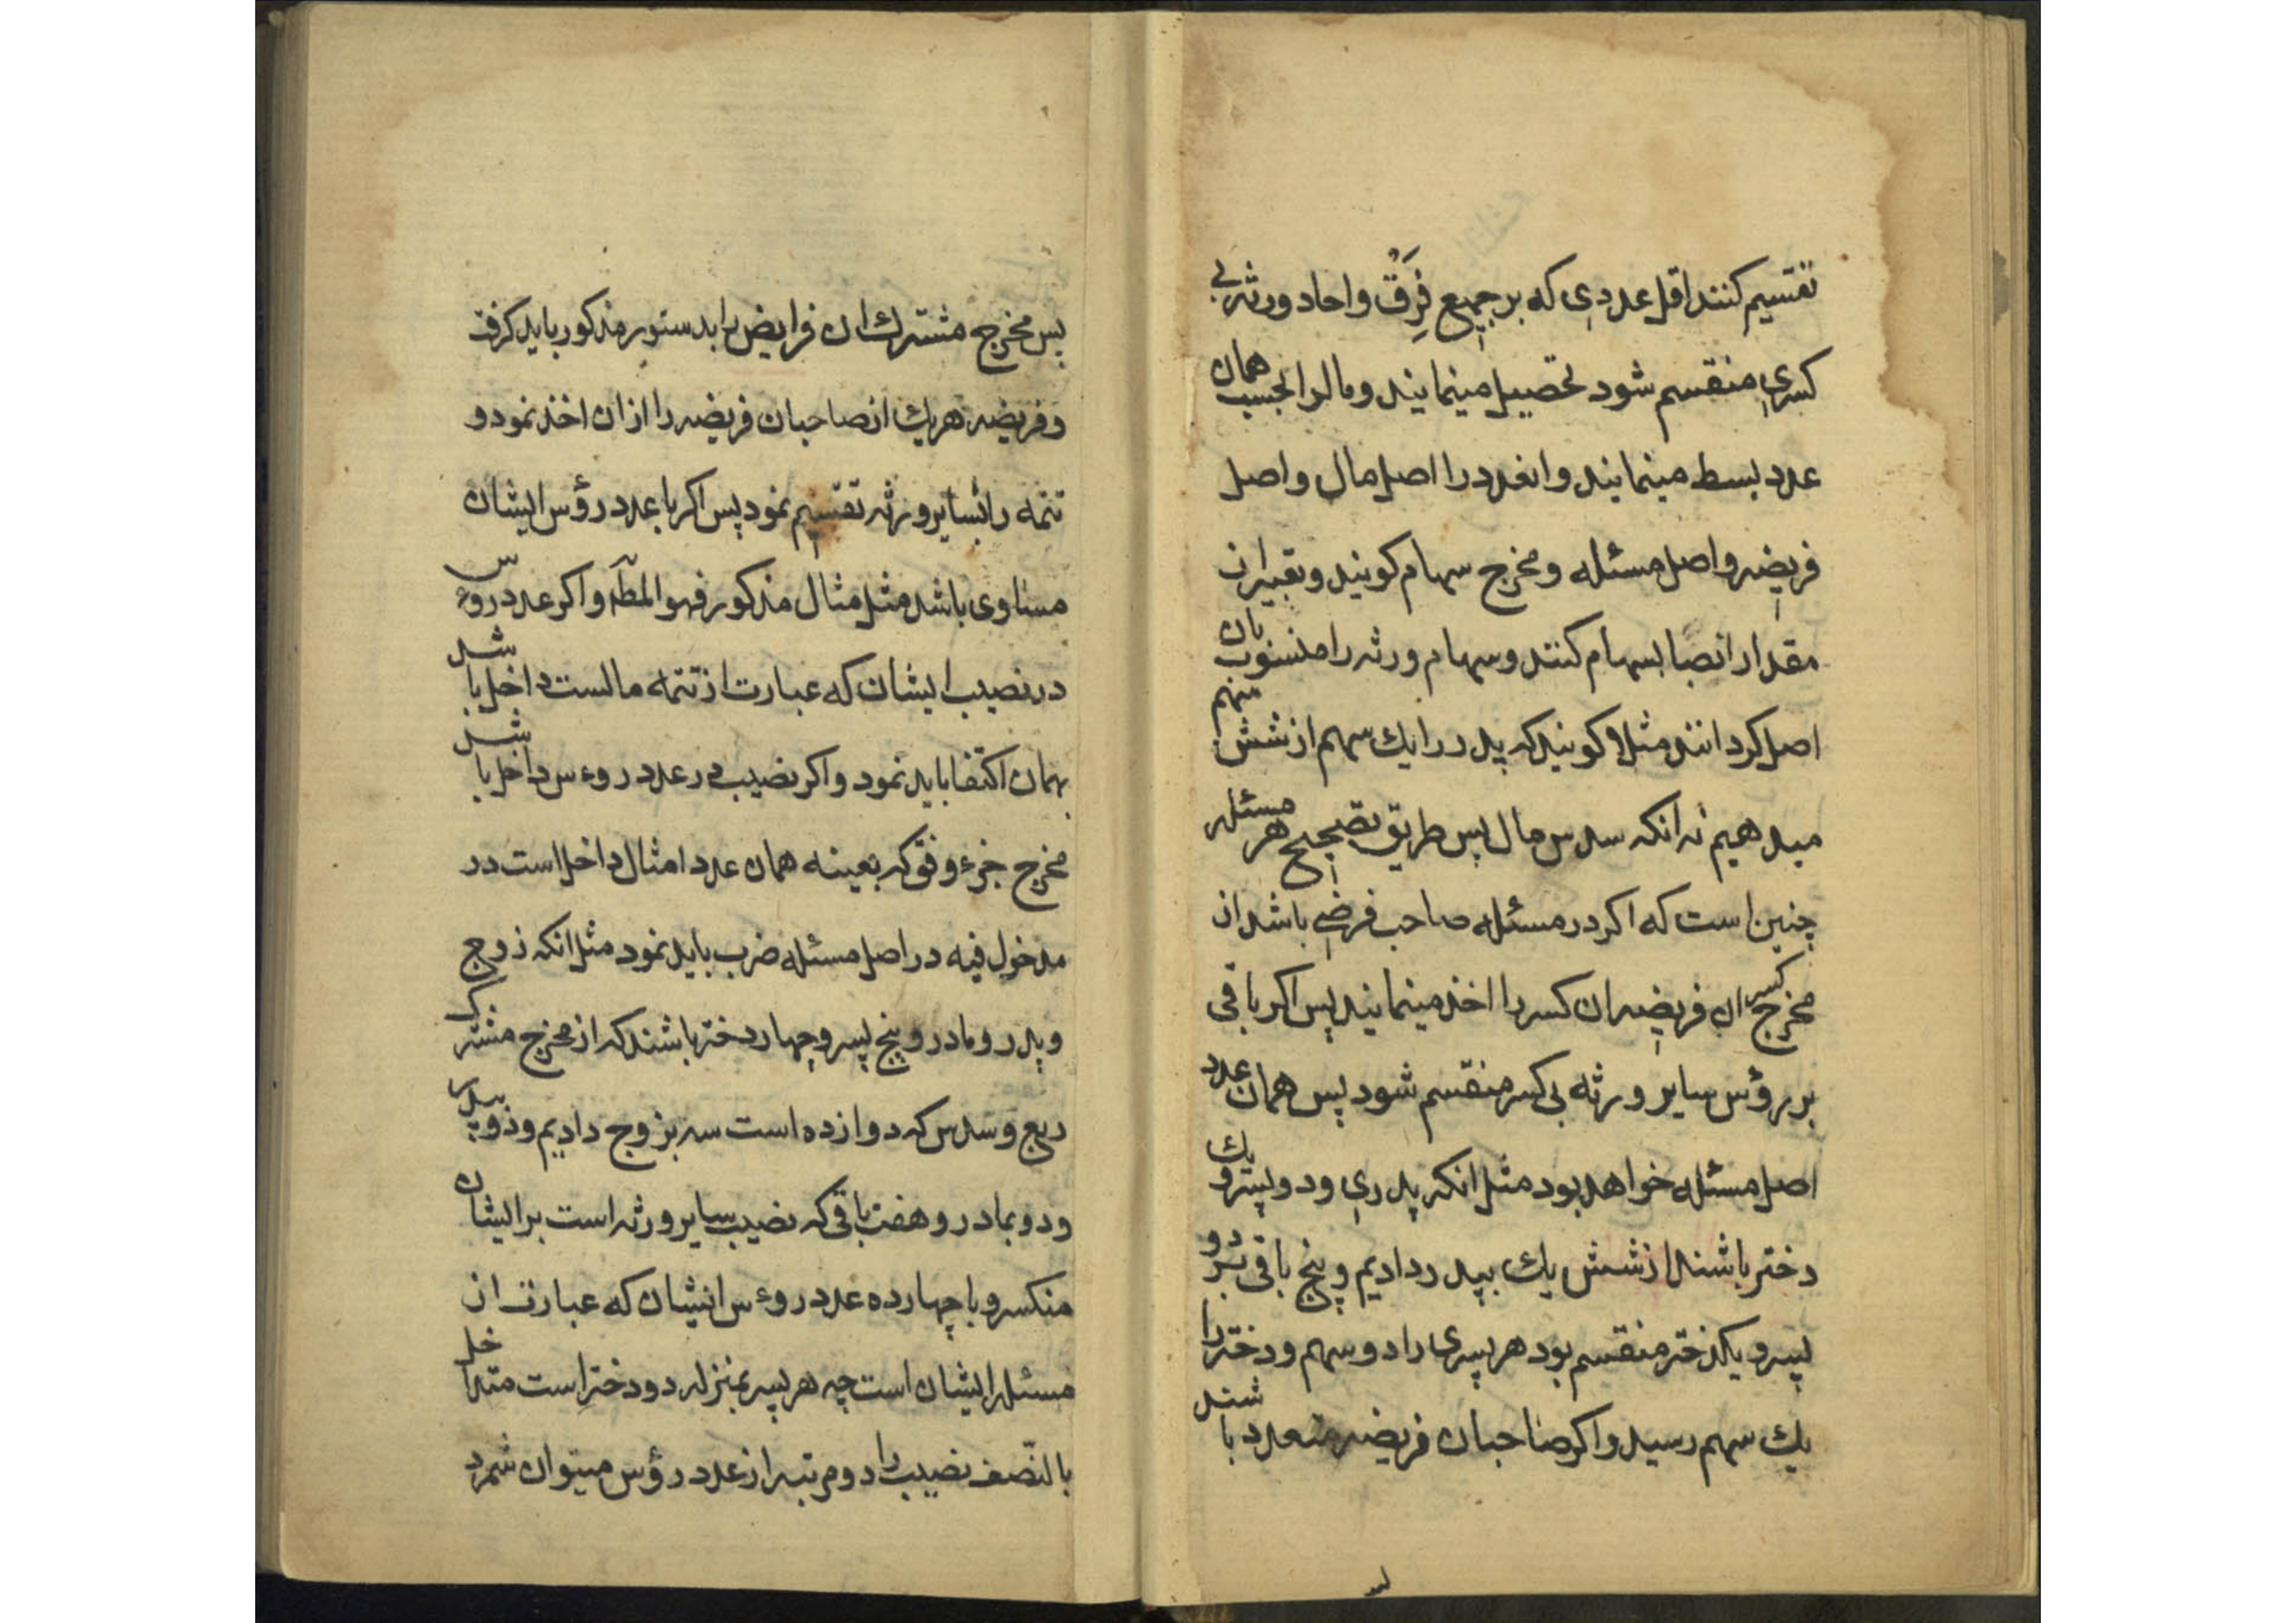 تقسیم کنند اقل عددی که بر جمیع فِرَق و احاد ورثه بی
کسری منقسم شود تحصیل مینمایند و مالرا بحسب همان
عدد بسط مینمایند و انعدد را اصل مال و اصل
فریضه و اصل مسئله و مخرج سهام کویند و تعبیر از
مقدار انصبا بسهام کنند و سهام ورثه را منسوب بان
اصل کردانند مثلا کویند که پدر را یك سهم از شش سهم
میدهیم نه انکه سدس مال پس طریق تصحیح هر مسئله
چنین است که اکر در مسئله صاحب فرضی باشد از
مخرج کسر ان فریضه ان کسر را اخذ مینمایند پس اکر باقی
بر رؤس سایر ورثه بی کسر منقسم شود پس همان عدد
اصل مسئله خواهد بود مثل انکه پدری و دو پسر و یك
دختر باشند از شش یك بپدر دادیم و پنج باقی بر دو
پسر و یکدختر منقسم بود هر پسری را دو سهم و دختر را
یك سهم رسید و اکر صاحبان فریضه متعدد باشند
پس مخرج مشترك ان فرایض را بدستور مذکور باید کرفت
و فریضه هر یك از صاحبان فریضه را از ان اخذ نمود و
تتمه را بسایر ورثه تقسیم نمود پس اکر با عدد رؤس ایشان
مساوی باشد مثل مثال مذکور فهو المط و اکر عدد رؤس
در نصیب ایشان که عبارت از تتمه مالست داخل باشد
بهمان اکتفا باید نمود و اکر نصیب در عدد روءس داخل باشد
مخرج جزء وفق که بعینه همان عدد امثال داخل است در
مدخول فیه در اصل مسئله ضرب باید نمود مثل انکه زوج
و پدر و مادر و پنج پسر و چهار دختر باشند که از مخرج مشترك
ربع و سدس که دوازده است سه بزوج دادیم و دو بپدر
و دو بمادر و هفت باقی که نصیب سایر ورثه است بر ایشان
منکسر و با چهارده عدد روءس ایشان که عبارت از
مسئله ایشان است چه هر پسر بمنزله دو دختر است متداخل
بالنّصف نصیب را دو مرتبه از عدد رؤس میتوان شمرد